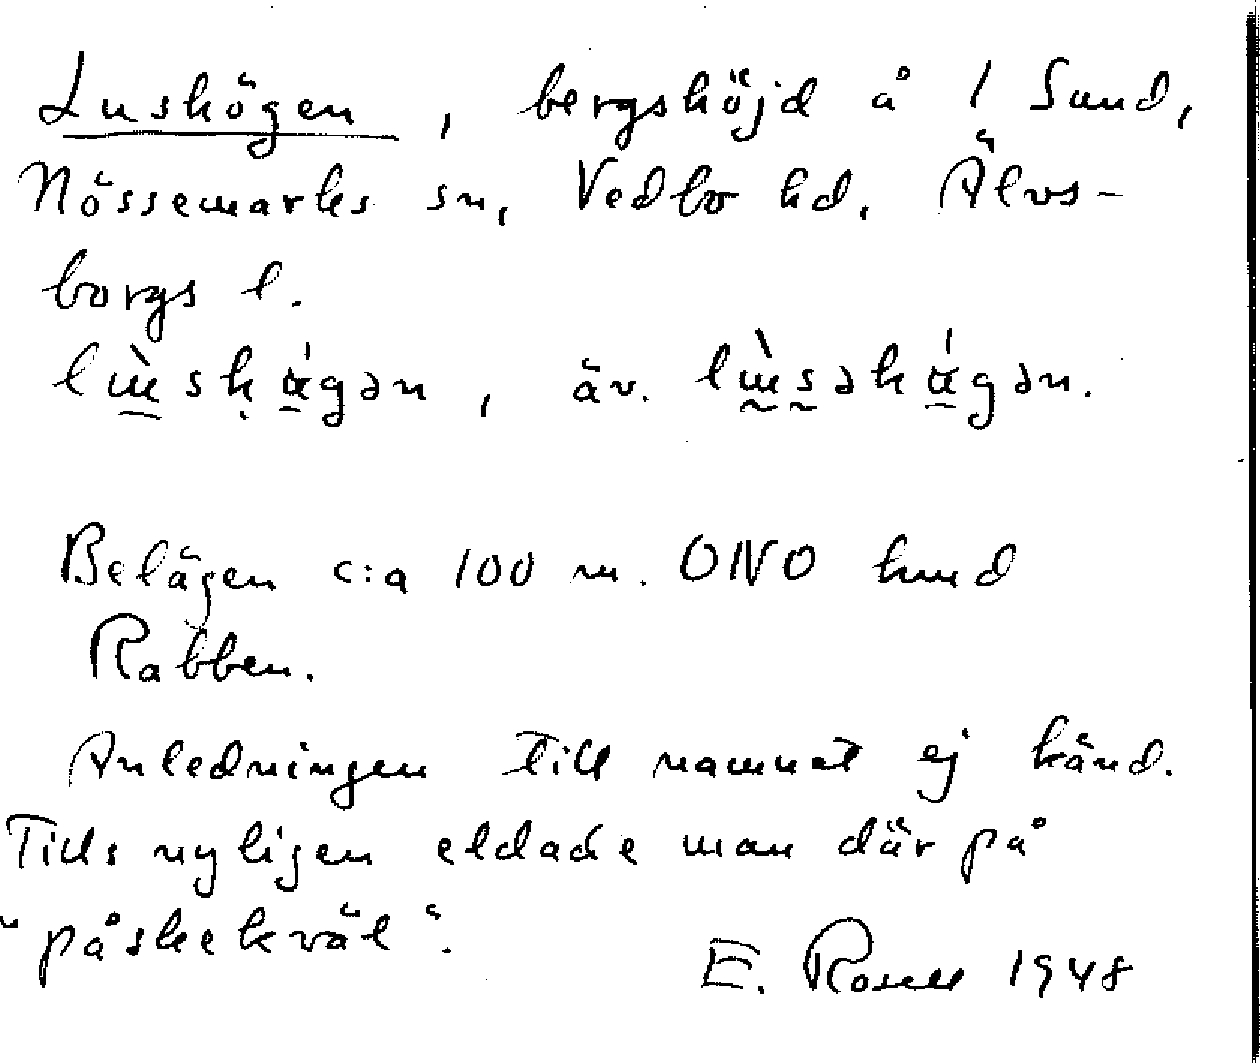 Lushögen, bergshöjd å 1 Sund,
Nössemarks sn, Vedbo hd, Älvs-
borgs l.
lùsḥágən, äv. lùsəhágən.
Belägen c:a 100 m. ONO
Rabben.
Anledningen till namnet ej känd.
Tills nyligen eldade man där på
"påskekväl".
E. Rosell 1948